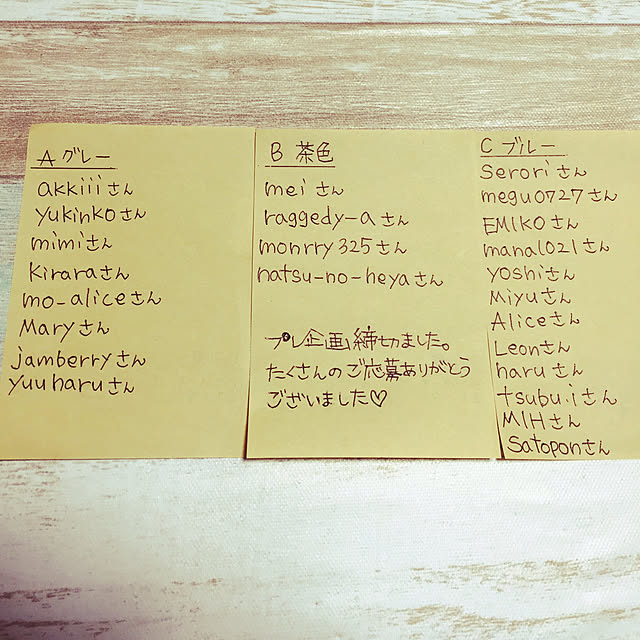 A グレー
akkiiiさん
yukinkoさん
mimiさん
kiraraさん
mo-aliceさん
Maryさん
jamberryさん
yuuharuさん
B 茶色
meiさん
raggedy-aさん
monrry325さん
natsu-no-heyaさん
プレ企画締切ました。
たくさんのご応募ありがとう
ございました♡
C ブルー
Seroriさん
megu0727さん
EMIKOさん
mana1021さん
yoshiさん
Miyuさん
Aliceさん
Leonさん
haruさん
tsubu.iさん
MIHさん
Satoponさん